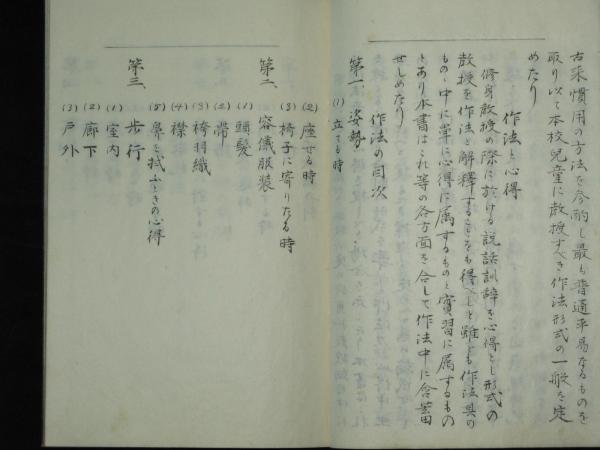 古来慣用の方法を斟酌し最も普通平易なるものを
取り以て本校児童に教授すべき作法形式の一般を定
めたり
作法と心得
修身教授の際に於ける説話訓辞を心得とし形式の
教授を作法と解釋することをも得べしと雖とも作法其の
もの丶中に常に心得に属するものと實習に属するもの
とあり本書はこれ等の各方面を合して作法中に含蓄
せしめたり
作法の目次
第一、姿勢
(1) 立てる時
(2) 座せる時
(3) 椅子に寄りたる時
第二、容儀服装
(1) 頭髪
(2) 帯
(3) 袴羽織
(4) 襟
(5) 鼻を拭ふときの心得
第三、歩行
(1) 室内
(2) 廊下
(3) 戸外